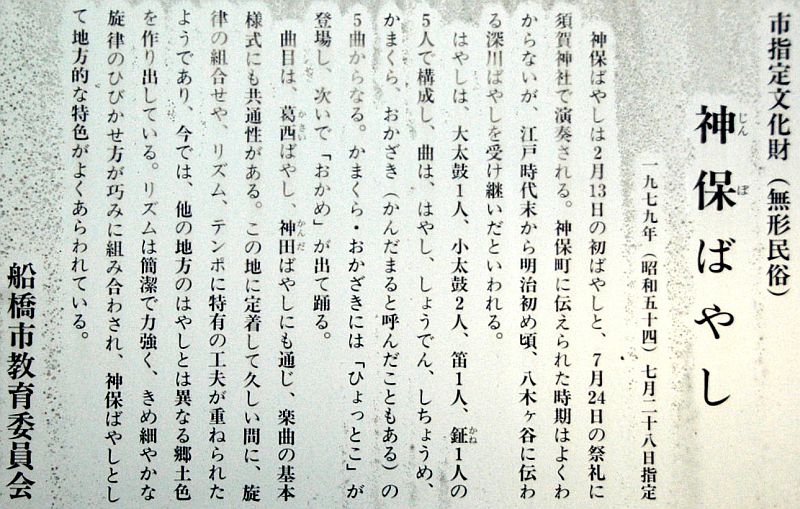 市指定文化財（無形民俗）
神保ばやし
じん
ぼ
一九七九年（昭和五十四）七月二十八日指定
神保ばやしは2月13日の初ばやしと、7月24日の祭礼に
須賀神社で演奏される。神保町に伝えられた時期はよくわ
からないが、江戸時代末から明治初め頃、八木ヶ谷に伝わ
る深川ばやしを受け継いだといわれる。
はやしは、大太鼓1人、小太鼓2人、笛1人、鉦1人の
かね
5人で構成し、曲は、はやし、しょうでん、しちょうめ、
かまくら、おかざき（かんだまると呼んだこともある）の
5曲からなる。かまくら・おかざきには「ひょっとこ」が
登場し、次いで「おかめ」が出て踊る。
曲目は、葛西ばやし、神田ばやしにも通じ、楽曲の基本
かさい
かんだ
様式にも共通性がある。この地に定着して久しい間に、旋
律の組合せや、リズム、テンポに特有の工夫が重ねられた
ようであり、今では、他の地方のはやしとは異なる郷土色
を作り出している。リズムは簡潔で力強く、きめ細やかな
旋律のひびかせ方が巧みに組み合わされ、神保ばやしとし
て地方的な特色がよくあらわれている。
船橋市教育委員会